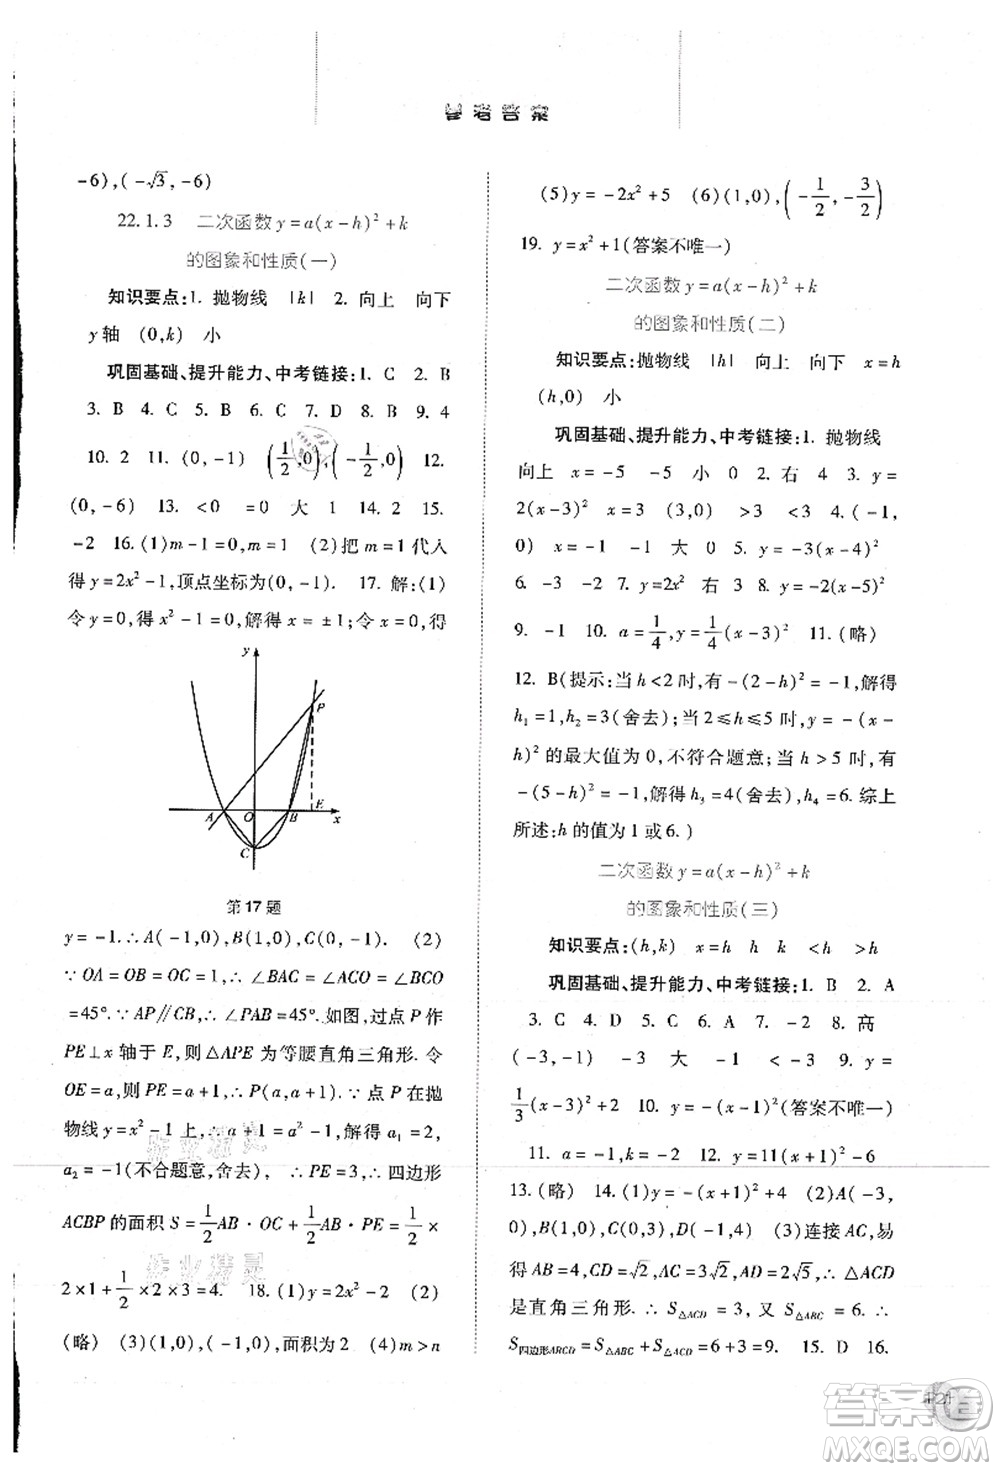 参考答案
-6),(-√3,-6)
22.1.3 二次函数y=a(x-h)²+k
的图象和性质(一)
知识要点:1. 抛物线 |k| 2. 向上 向下
y轴 (0,k) 小
巩固基础、提升能力、中考链接:1. C 2. B
3. B 4. C 5. B 6. C 7. D 8. B 9. 4
10. 2 11. (0,-1) (1/2,0),(-1/2,0) 12.
(0,-6) 13. <0 =0 大 1 14. 2 15.
-2 16. (1)m-1=0,m=1 (2)把m=1代入
得y=2x²-1,顶点坐标为(0,-1). 17. 解:(1)
令y=0,得x²-1=0,解得x=±1;令x=0,得
y
P
A O B E x
C
第17题
y=-1.∴A(-1,0),B(1,0),C(0,-1). (2)
∵OA=OB=OC=1,∴∠BAC=∠ACO=∠BCO
=45°.∵AP∥CB,∴∠PAB=45°.如图,过点P作
PE⊥x轴于E,则△APE为等腰直角三角形.令
OE=a,则PE=a+1,∴P(a,a+1).∵点P在抛
物线y=x²-1上,∴a+1=a²-1,解得a₁=2,
a₂=-1(不合题意,舍去),∴PE=3,∴四边形
ACBP的面积S=1/2AB·OC+1/2AB·PE=1/2×
2×1+1/2×2×3=4. 18. (1)y=2x²-2 (2)
(略) (3)(1,0),(-1,0),面积为2 (4)m>n
(5)y=-2x²+5 (6)(1,0),(-1/2,-3/2)
19. y=x²+1(答案不唯一)
二次函数y=a(x-h)²+k
的图象和性质(二)
知识要点:抛物线 |h| 向上 向下 x=h
(h,0) 小
巩固基础、提升能力、中考链接:1. 抛物线
向上 x=-5 -5 小 0 2. 右 4 3. y=
2(x-3)² x=3 (3,0) >3 <3 4. (-1,
0) x=-1 -1 大 0 5. y=-3(x-4)²
6. -3 -3 7. y=2x² 右 3 8. y=-2(x-5)²
9. -1 10. a=1/4,y=1/4(x-3)² 11. (略)
12. B(提示:当h<2时,有-(2-h)²=-1,解得
h₁=1,h₂=3(舍去);当2≤h≤5时,y=-(x-
h)²的最大值为0,不符合题意;当h>5时,有
-(5-h)²=-1,解得h₃=4(舍去),h₄=6.综上
所述:h的值为1或6.)
二次函数y=a(x-h)²+k
的图象和性质(三)
知识要点:(h,k) x=h h k <h >h
巩固基础、提升能力、中考链接:1. B 2. A
3. C 4. D 5. C 6. A 7. -2 8. 高
(-3,-1) -3 大 -1 <-3 9. y=
1/3(x-3)²+2 10. y=-(x-2)²(答案不唯一)
11. a=-1,k=-2 12. y=11(x+1)²-6
13. (略) 14. (1)y=-(x+1)²+4 (2)A(-3,
0),B(1,0),C(0,3),D(-1,4) (3)连接AC,易
得AB=4,CD=√2,AC=3√2,AD=2√5,∴△ACD
是直角三角形.∴S△ACD=3,又S△ABC=6.∴
S四边形ABCD=S△ABC+S△ACD=6+3=9. 15. D 16.
作业精灵
答案圈
MXQE.COM